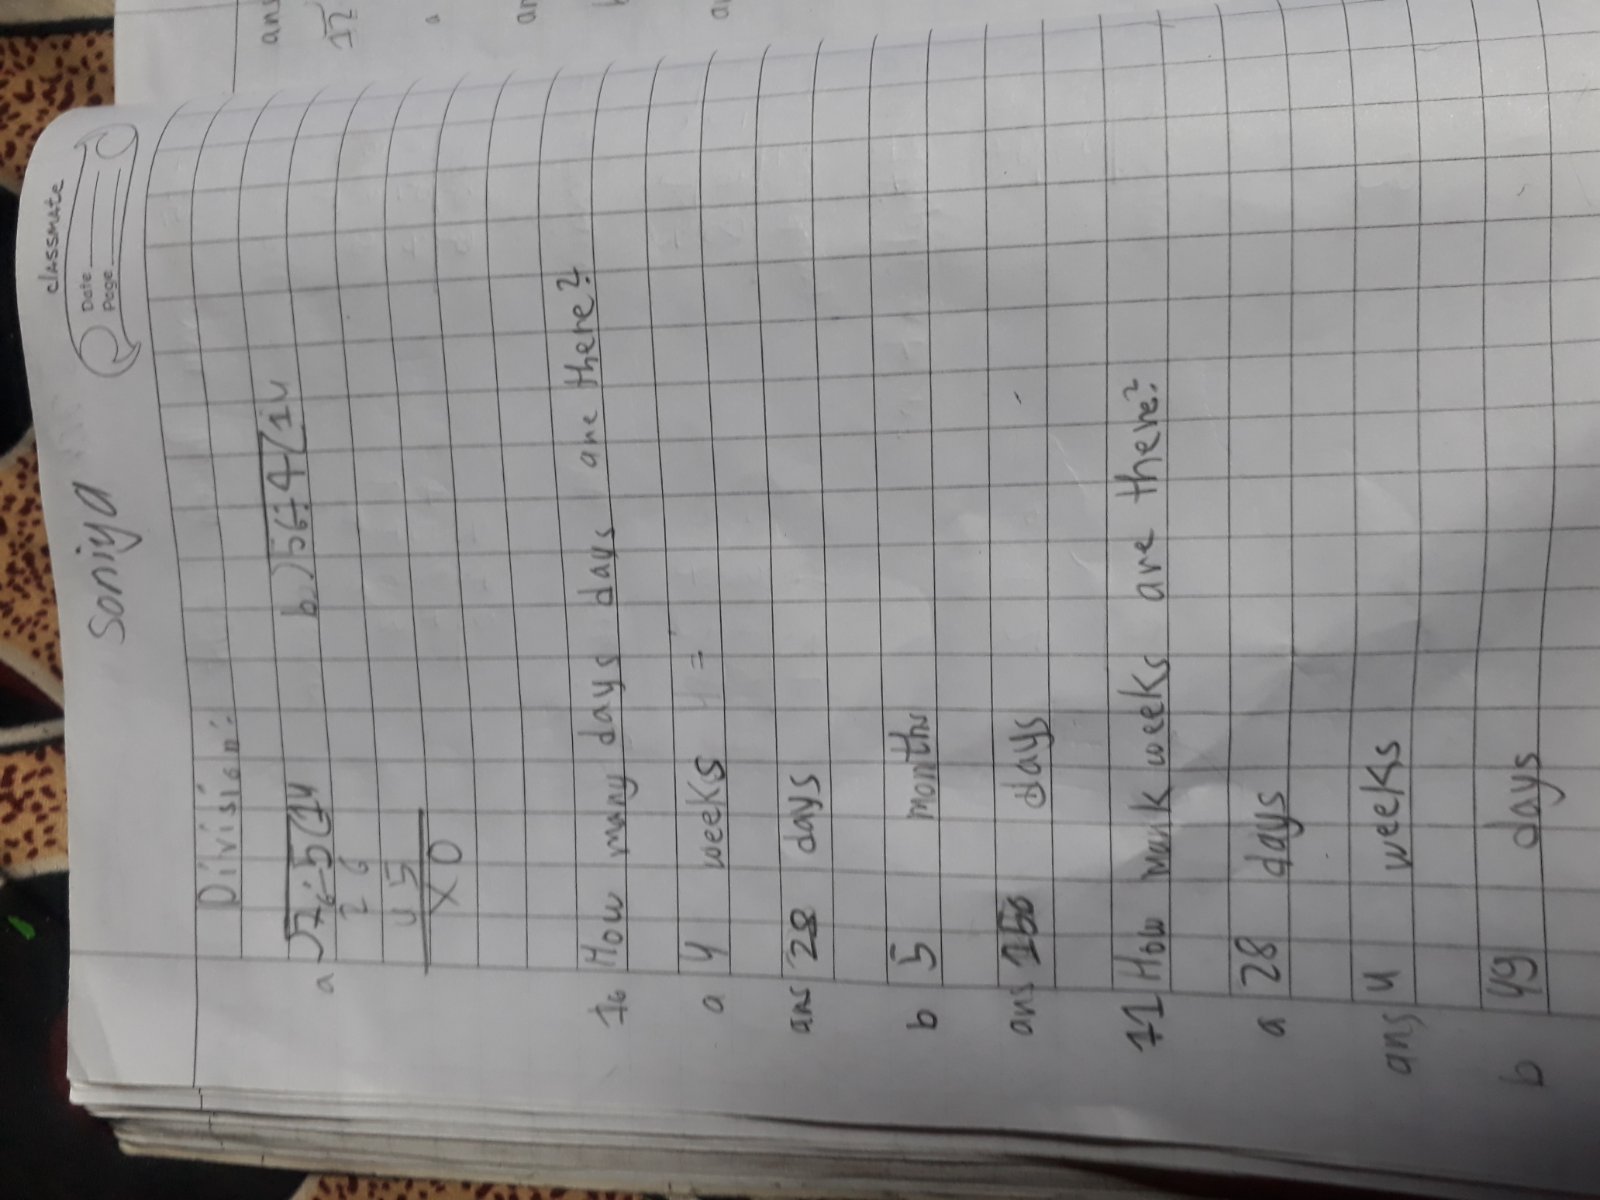 classmate
Date
Page
Soniya
Division:
a √76÷5(14 b.)56÷4(14
2 6
4 5
X 0
16 How many days days are there?
a 4 weeks =
ans 28 days
b 5 months
ans 150 days
11 How mank weeks are there?
a 28 days
ans 4 weeks
b 49 days
ans
12
a